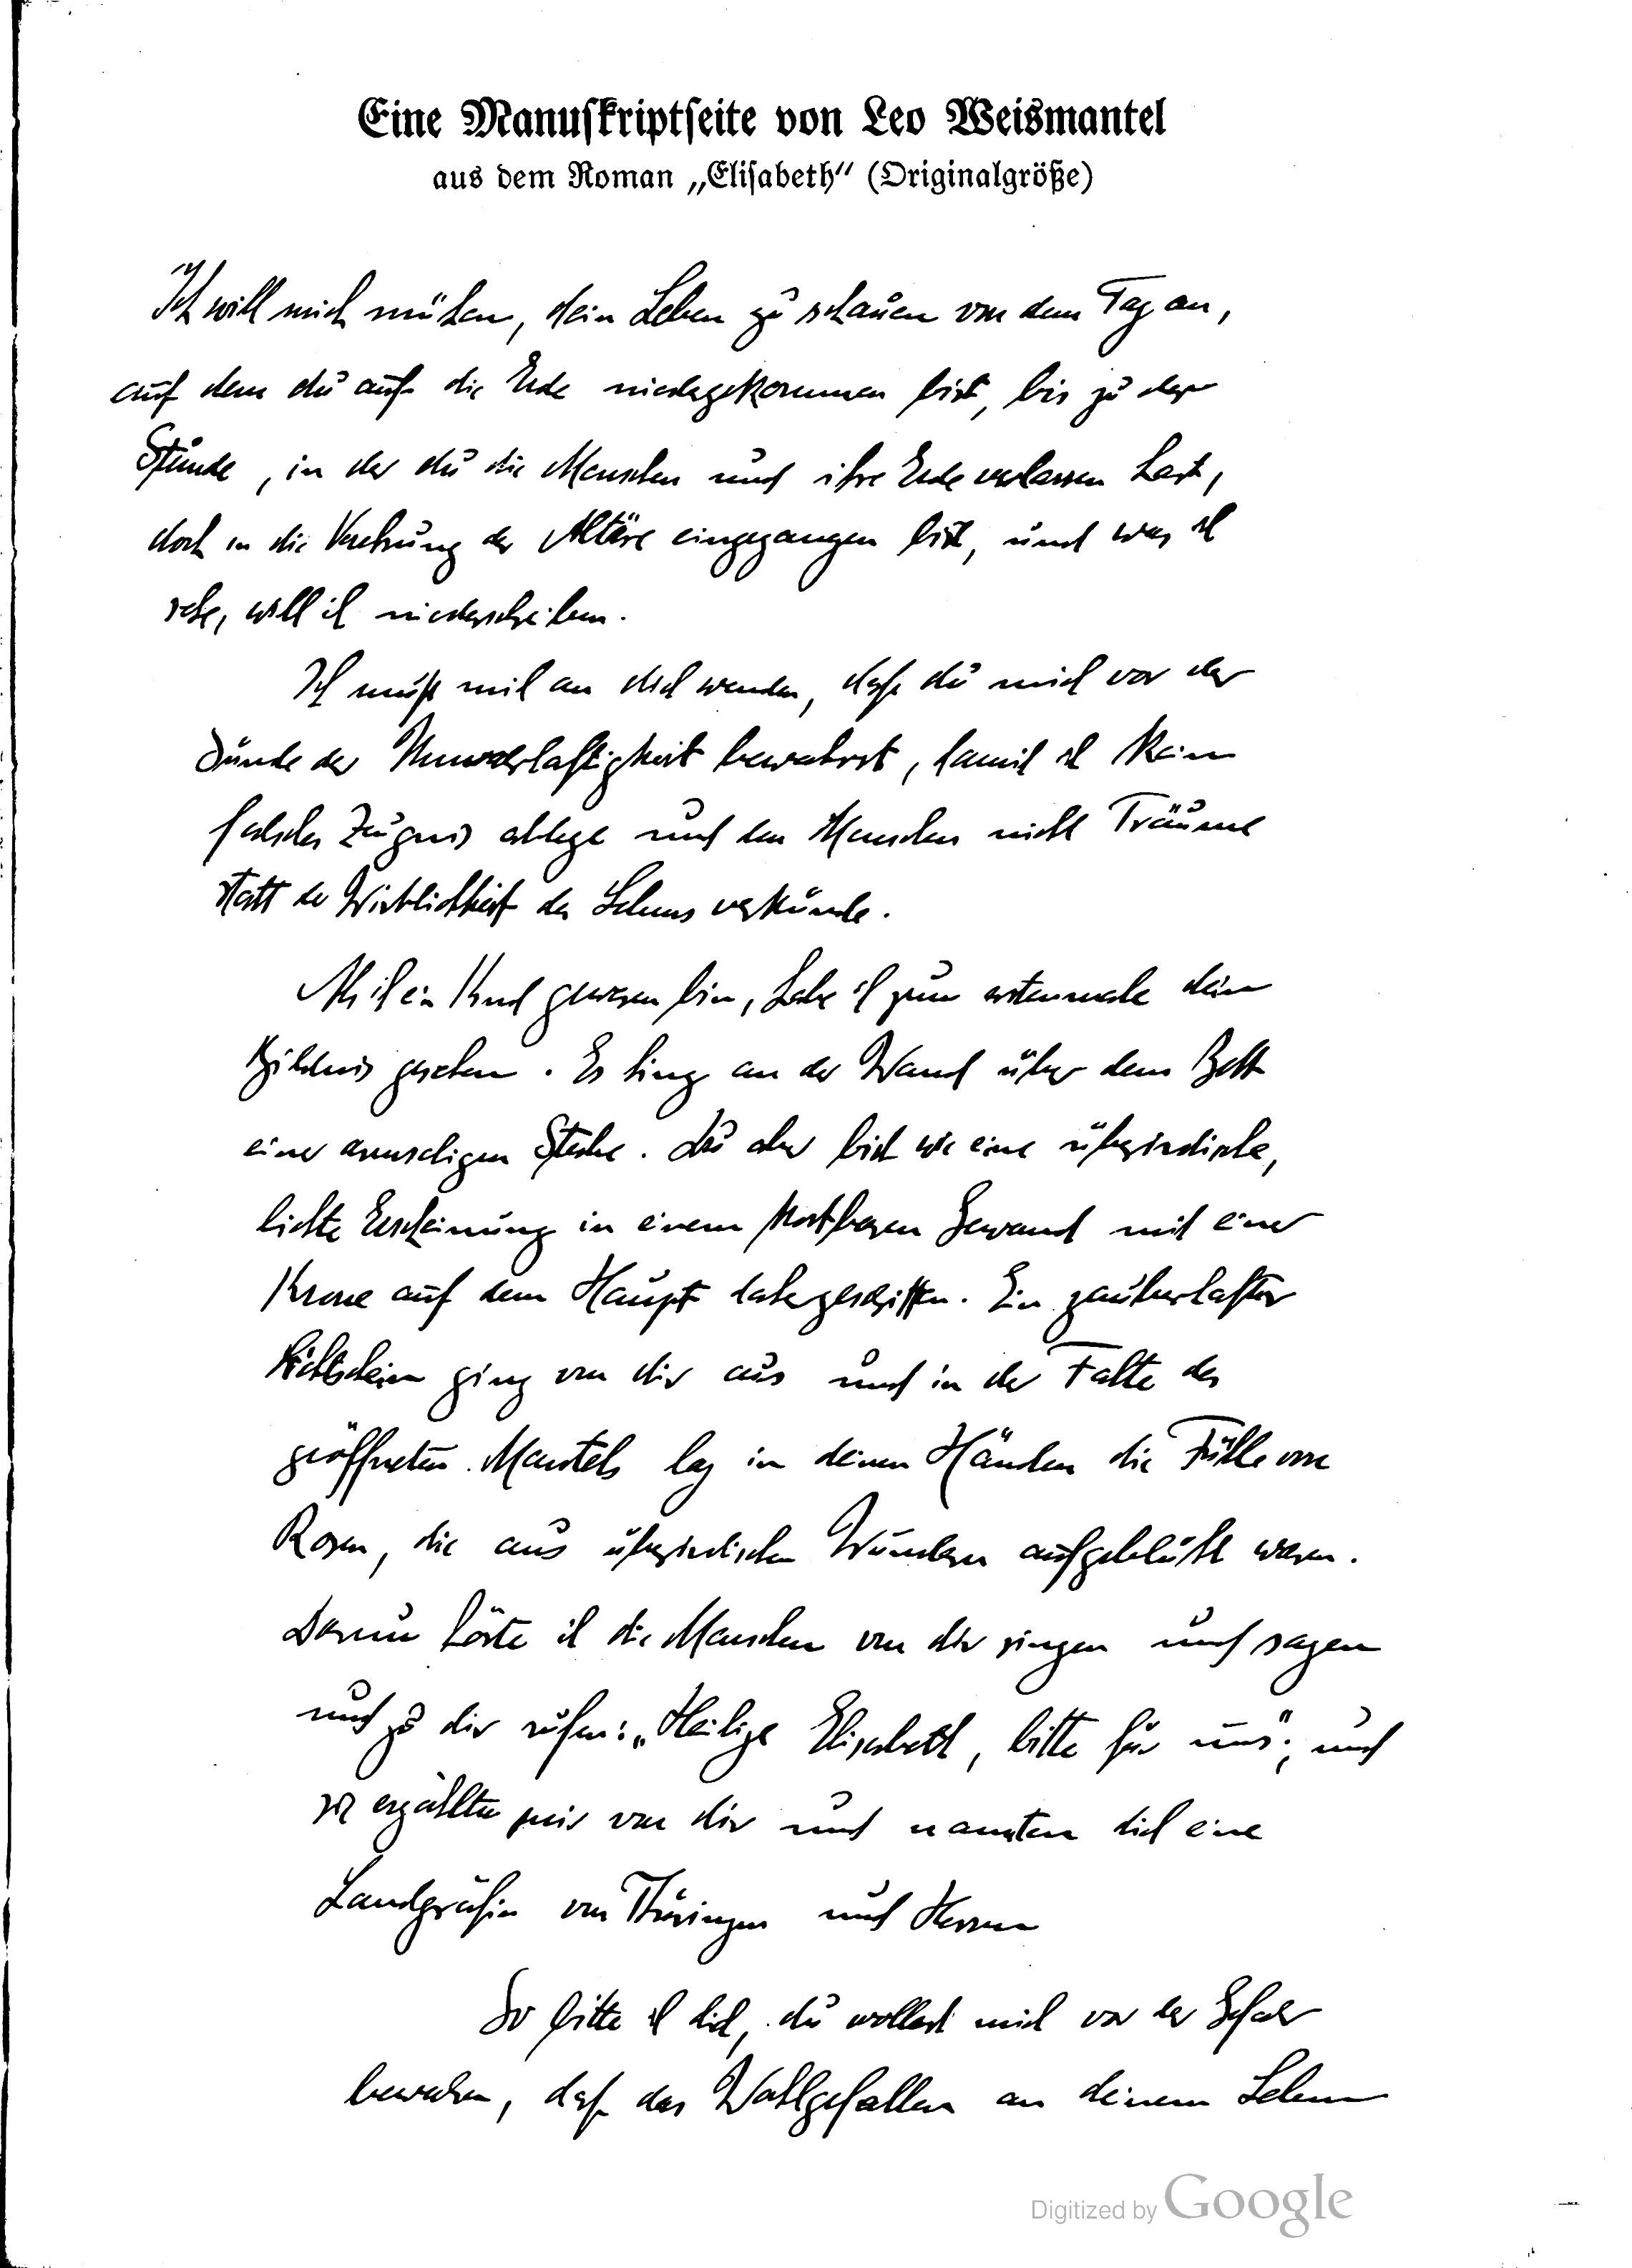 Eine Manuskriptseite von Leo Weismantel
aus dem Roman „Elisabeth“ (Originalgröße)
Ich will mich mühen, dein Leben zu schauen von dem Tag an,
auf dem du auf die Erde niedergekommen bist, bis zu der
Stunde, in der du die Menschen und ihre Erde verlassen hast,
doch in die Verehrung der Altäre eingegangen bist, und was ich
sehe, will ich niederschreiben.
Ich muß mich an dich wenden, daß du mich vor der
Sünde der bewahrst, damit ich kein
falsches Zeugnis ablege und den Menschen nicht Träume
statt der Wirklichkeit des Lebens verkünde.
Als ich ein Kind gewesen bin, habe ich zum erstenmale dein
Bildnis gesehen. Es hing an der Wand über dem Bett
einer armseligen Stube. Du aber bist wie eine überirdische,
lichte Erscheinung in einem kostbaren Gewand mit einer
Krone auf dem Haupt dahergeschritten. Ein zauberhafter
Lichtschein ging von dir aus und in der Falte des
geöffneten Mantels lag in deinen Händen die Fülle von
Rosen, die aus überirdischen Wundern aufgeblüht waren.
Darum hörte ich die Menschen von dir singen und sagen
und zu dir rufen: „Heilige Elisabeth, bitte für uns“; und
sie erzählten mir von dir und nannten dich eine
Landgräfin von Thüringen und Hessen
So bitte ich dich, du wollest mich vor der Gefahr
bewahren, daß das Wohlgefallen an deinem Leben
Digitized by Google